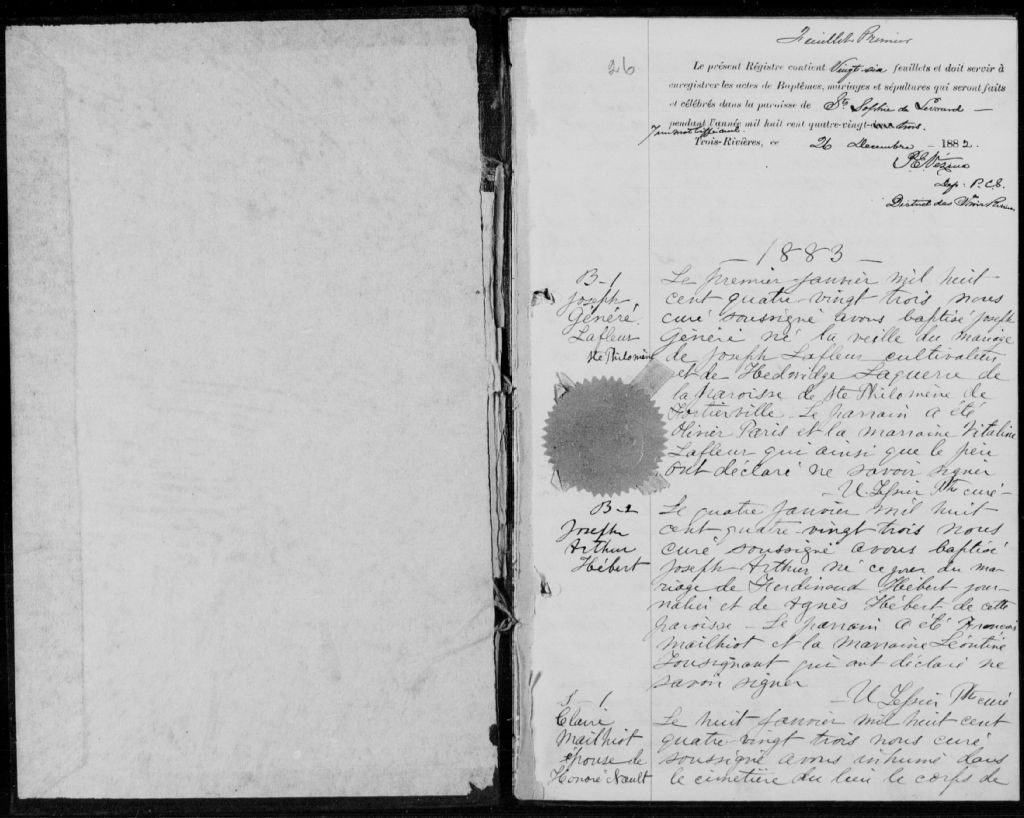 Feuillet Premier
26
Le présent Régistre contient Vingt-six feuillets et doit servir à
enregistrer les actes de Baptêmes, mariages et sépultures qui seront faits
et célébrés dans la paroisse de Ste Sophie de Lévrard —
pendant l'année mil huit cent quatre-vingt- trois.
Trois-Rivières, ce 26 Decembre — 1882.
Dep: P.C.S.
District des Trois Rivieres
— 1883 —
B-1
Joseph
Généré
Lafleur
Ste Philomène
Le premier Janvier mil huit
cent quatre-vingt trois nous
curé soussigné avons baptisé Joseph
Généré né la veille du mariage
de Joseph Lafleur cultivateur
et de Hedwidge Laquerre de
la paroisse de Ste Philomène de
Fortierville. Le parrain a été
Olivier Paris et la marraine Vitaline
Lafleur qui ainsi que le père
ont déclaré ne savoir signer
— U. Tessier Ptre curé —
B-2
Joseph
Arthur
Hébert
Le quatre Janvier mil huit
cent quatre-vingt trois nous
curé soussigné avons baptisé
Joseph Arthur né ce jour du ma-
riage de Ferdinand Hébert jour-
nalier et de Agnès Hébert de cette
paroisse — Le parrain a été François
Mailhiot et la marraine Léontine
Tousignant qui ont déclaré ne
savoir signer
— U Tessier Ptre curé
S 1
Claire
Mailhiot
épouse de
Honoré Nault
Le huit Janvier mil huit cent
quatre vingt trois nous curé
soussigné avons inhumé dans
le cimetière du lieu le corps de